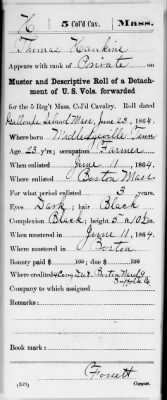 H | 5 Col'd Cav. | Mass.
Thomas Hawkins
Appears with rank of Private on
Muster and Descriptive Roll of a Detach-
ment of U. S. Vols. forwarded
for the 5 Reg't Mass. Col'd Cavalry. Roll dated
Galloups Island Mass, June 23, 1864.
Where born Tenn
Age 23 y'rs; occupation Farmer
When enlisted June 11, 1864.
Where enlisted Boston Mass
For what period enlisted 3 years.
Eyes Dark; hair Black
Complexion Black; height 5 ft. in.
When mustered in June 11, 1864.
Where mustered in Boston
Bounty paid $ 100; due $ 100
Where credited Boston Ward
Suffolk Co
Company to which assigned
Remarks:
Book mark:
(339)